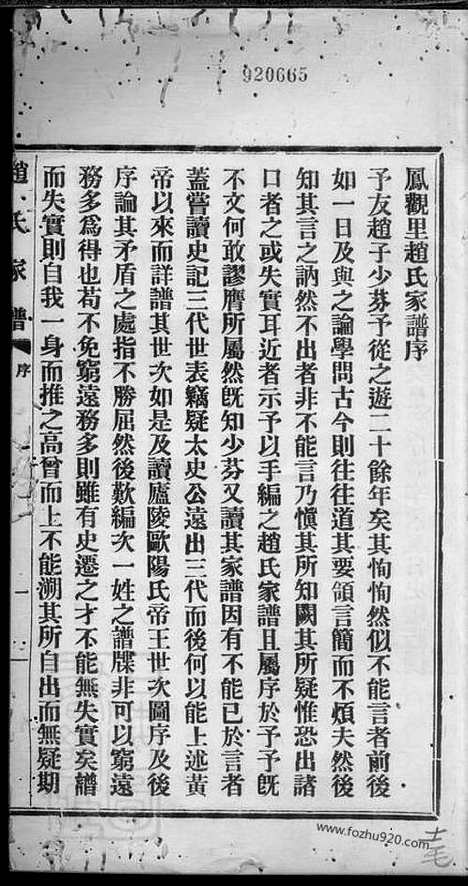 920665
鳳觀里趙氏家譜序
予友趙子少芬予從之遊二十餘年矣其恂恂然似不能言者前後
如一日及與之論學問古今則往往道其要領言簡而不煩夫然後
知其言之訥然不出者非不能言乃愼其所知闕其所疑惟恐出諸
口者之或失實耳近者示予以手編之趙氏家譜且屬序於予予旣
不文何敢謬膺所屬然旣知少芬又讀其家譜因有不能已於言者
蓋嘗讀史記三代世表竊疑太史公遠出三代而後何以能上述黃
帝以來而詳譜其世次如是及讀廬陵歐陽氏帝王世次圖序及後
序論其矛盾之處指不勝屈然後歎編次一姓之譜牒非可以窮遠
務多爲得也苟不免窮遠務多則雖有史遷之才不能無失實矣譜
而失實則自我一身而推之高曾而上不能溯其所自出而無疑期
趙氏家譜
序
一
www.fozhu920.com